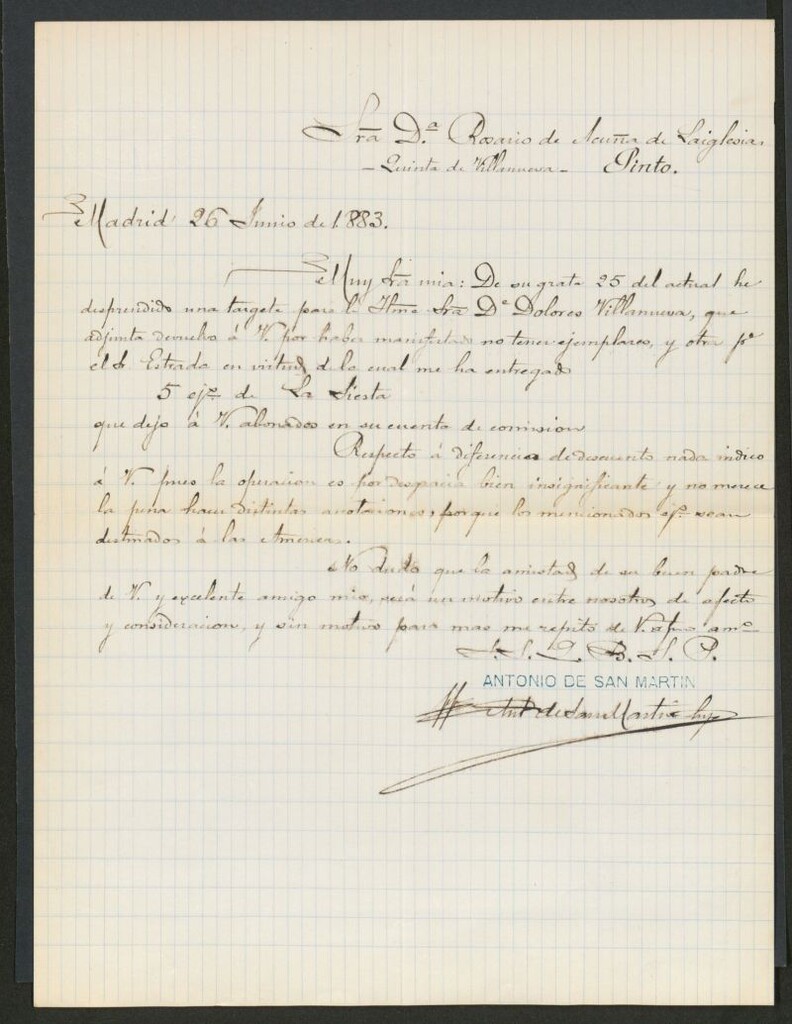 Sra D.ª Rosario de Acuña de Laiglesia,
- Quinta de Villanueva - Pinto.
Madrid 26 Junio de 1.883.
Muy Sra mia: De su grata 25 del actual he
desprendido una targeta para la Ilma Sra Dª Dolores Villanueva, que
adjunta devuelvo á V. por haber manifestado no tener ejemplares, y otra pª
el Sr Estrada en virtud de la cual me ha entregado
5 ejs. de La Siesta
que dejo á V. abonados en su cuenta de comision
Respecto á diferencia de descuento nada indico
á V. pues la operacion es por desgracia bien insignificante y no merece
la pena hacer distintas anotaciones, porque los mencionados ejs. sean
destinados á las Americas.
No dudo que la amistad de su buen padre
de V. y excelente amigo mio, será un motivo entre nosotros de afecto
y consideracion, y sin motivo para mas me repito de V. afmo amº
S. S. Q. B. S. P.
ANTONIO DE SAN MARTIN
Antº de San Martin